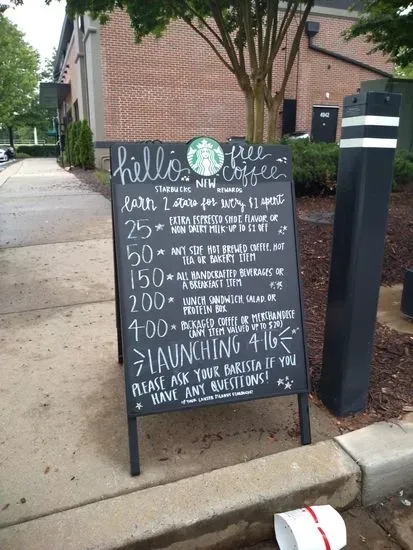 hello free coffee
NEW
STARBUCKS REWARDS
Earn 2 stars for every $1 spent
25★ EXTRA ESPRESSO SHOT, FLAVOR, OR
NON DAIRY MILK - UP TO $1 OFF
50★ ANY SIZE HOT BREWED COFFEE, HOT
TEA OR BAKERY ITEM
150★ ALL HANDCRAFTED BEVERAGES OR
A BREAKFAST ITEM
200★ LUNCH SANDWICH, SALAD, OR
PROTEIN BOX
400★ PACKAGED COFFEE OR MERCHANDISE
(ANY ITEM VALUED UP TO $20)
LAUNCHING 4·16
PLEASE ASK YOUR BARISTA IF YOU
HAVE ANY QUESTIONS!
4942